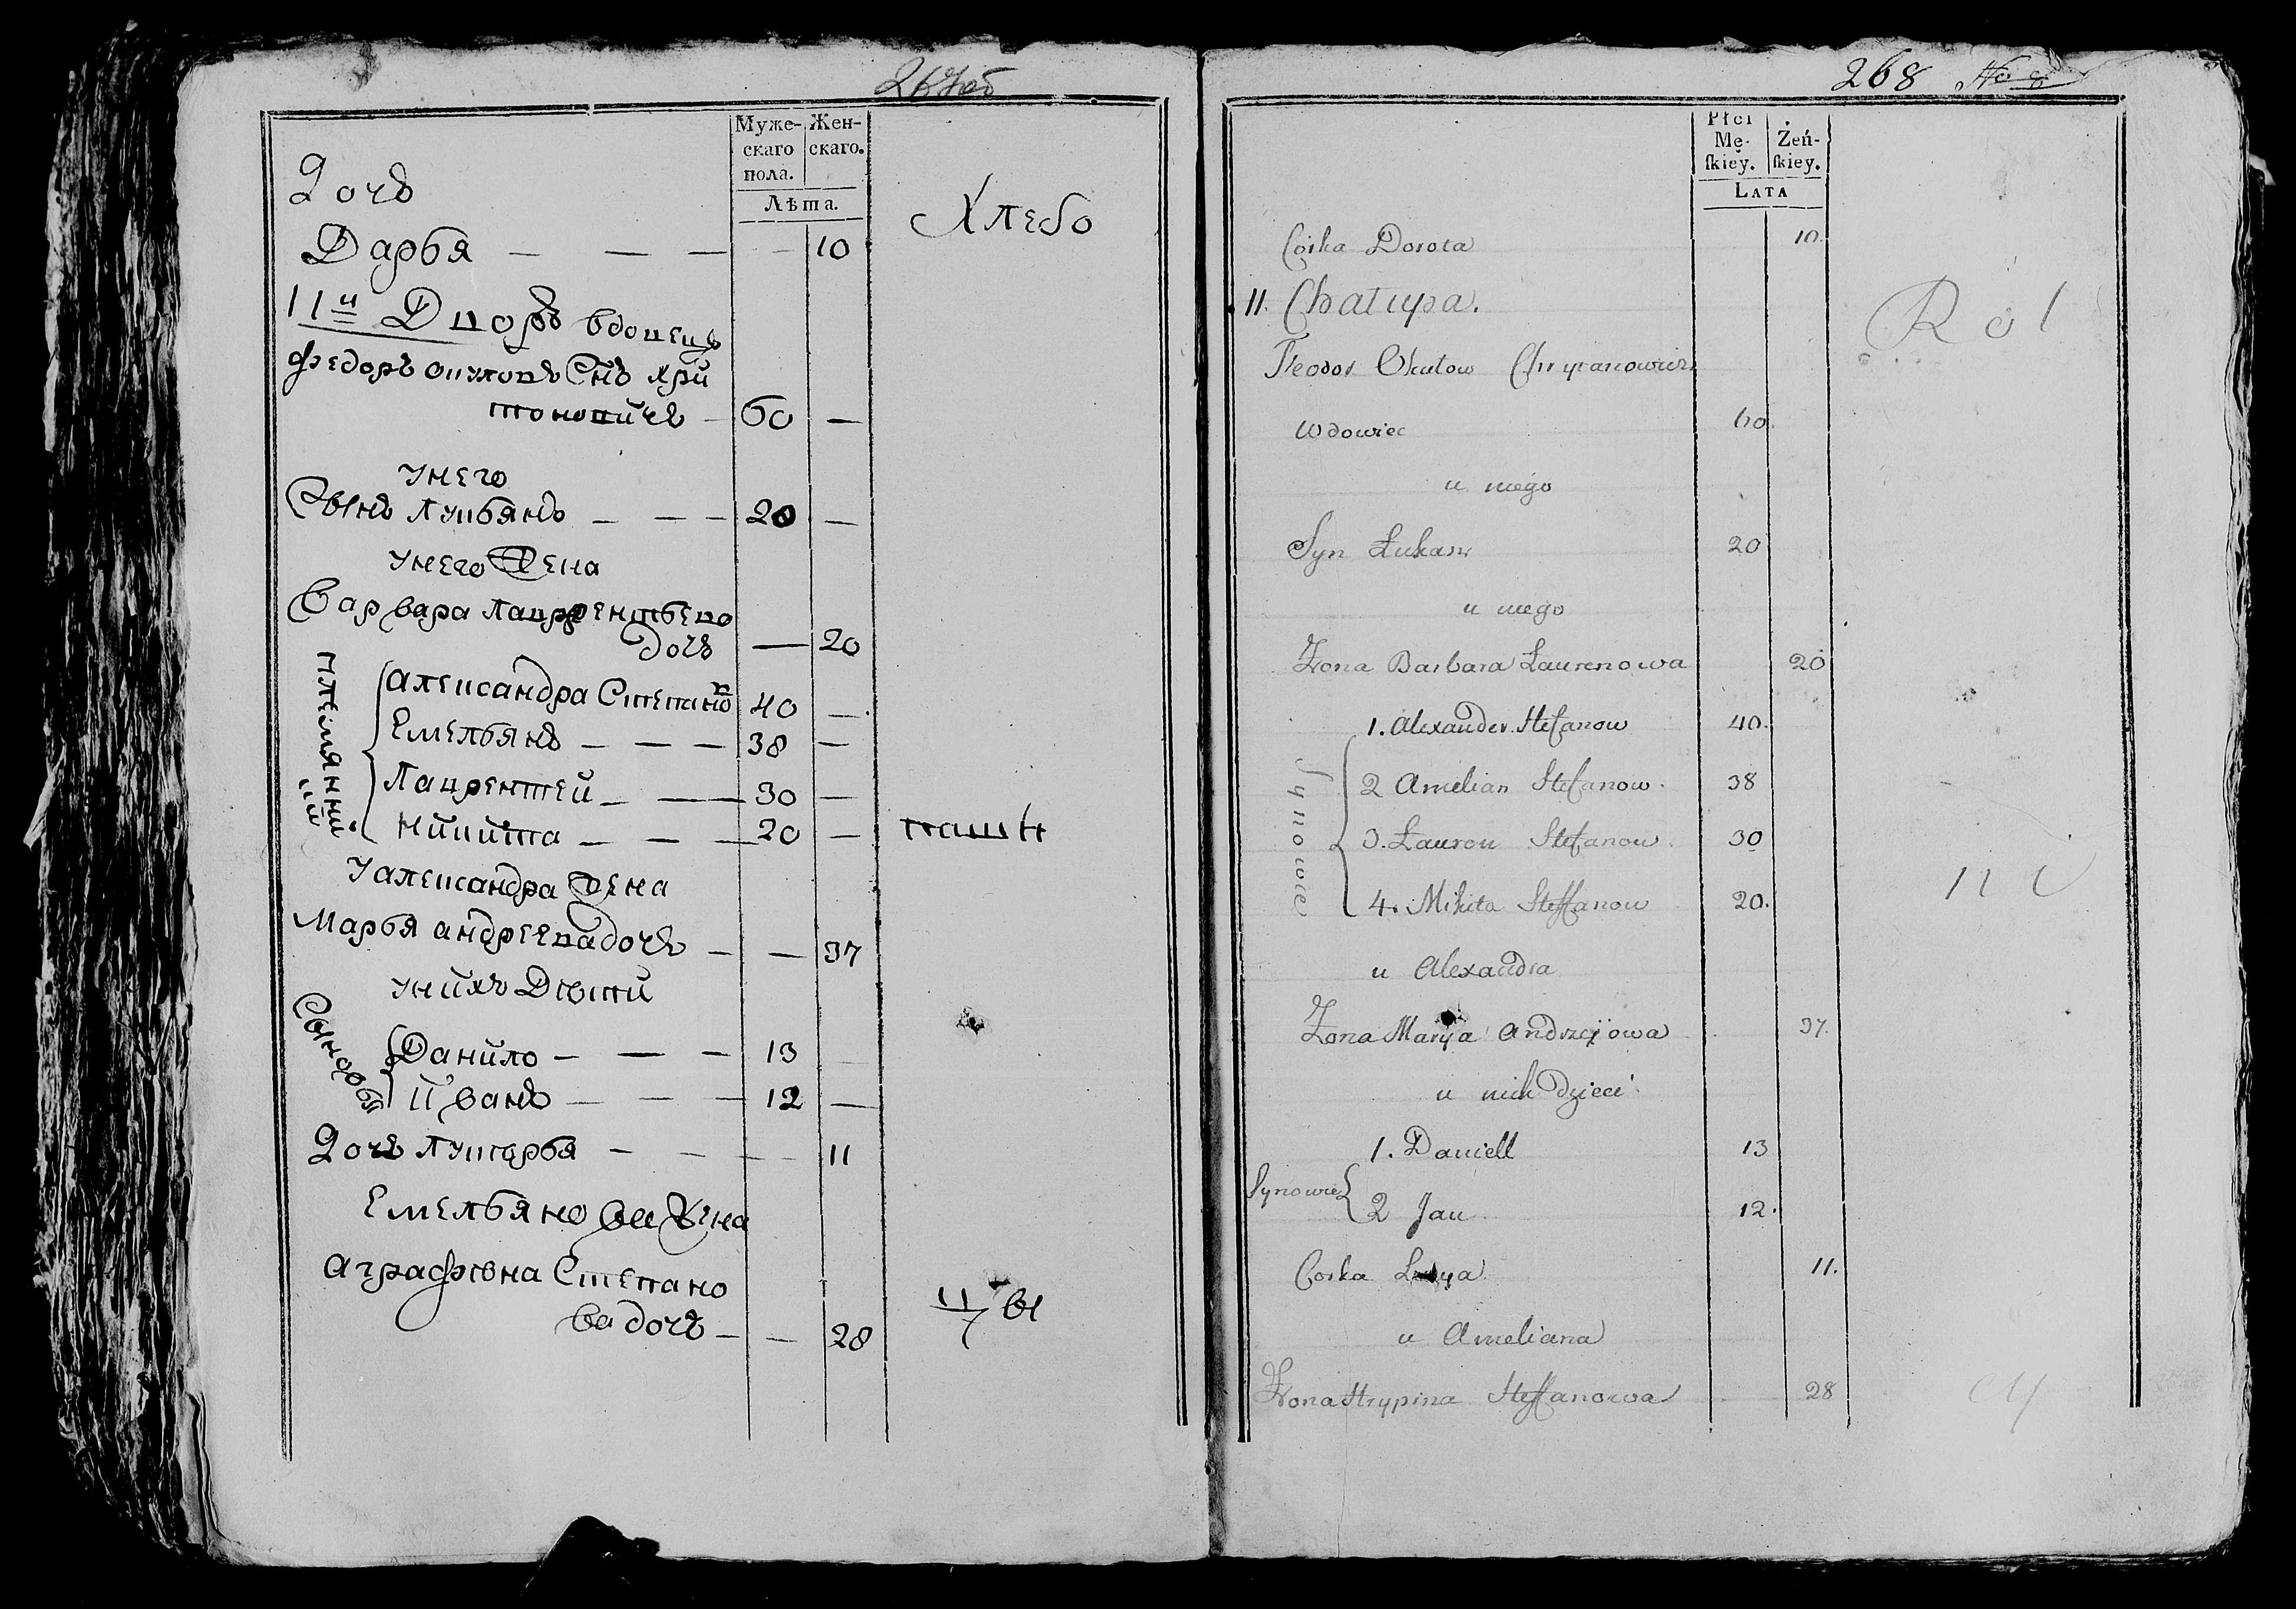 267об
Муже- Жен-
скаго скаго.
пола.
Лѣта.
Дочь
Хлебо
Дарья — — — — 10
11й Дворъ вдовецъ
Федоръ окуловъ Снъ хри
тоновичь — 60 —
унего
Сынъ лукьянъ — — — 20 —
унего жена
Варвара лаврентьева
дочь — 20
племянники
Александра Степанов 40 —
Емельянъ — — — 38 —
Лаврентей — — 30 —
Никита — — — 20 — пашѣ
у александра жена
Марья андреева дочь — — 37
унихъ Дѣти
Сыновья
Данило — — — 13 —
Иванъ — — — 12 —
Дочь лукерья — — — — 11
Емельянова жена
аграфѣна Степано
ва дочь — — 28
цы
268
Płci
Mę- Żeń-
ſkiey. ſkiey.
LATA
Corka Dorota 10.
11. Chałupa.
Rol
Fieodor Okulow Chrytanowicz
Wdowiec 60
u niego
Syn Łukasz 20
u niego
Zona Barbara Łaurenowa 20
1. Alexander Stefanow 40.
Synowce
2 Amelian Stefanow. 38
3. Łauron Stefanow. 30
4. Mikita Steffanow 20.
ni
u Alexandra
Zona Marya Andrzejowa 37.
u nich dzieci
1. Daniell 13
Synowie
2 Jan 12.
Corka 11.
u Ameliana
Zona Hrypina Steffanowa 28
cy